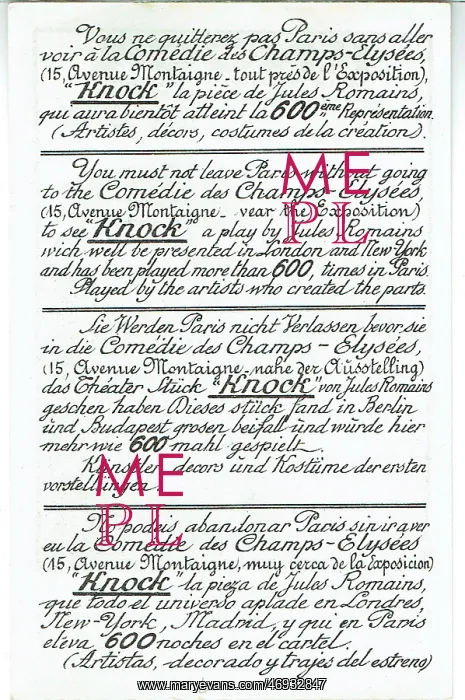 Vous ne quitterez pas Paris sans aller
voir à la Comédie des Champs-Elysées,
(15, Avenue Montaigne - tout près de l'Exposition),
"Knock" la pièce de Jules Romains,
qui aura bientôt atteint la 600ème Représentation.
(Artistes, décors, costumes de la création).
You must not leave Paris without going
to the Comédie des Champs-Elysées
(15, Avenue Montaigne - vear the Exposition)
to see "Knock" a play by Jules Romains
wich well be presented in London and New York
and has been played more than 600, times in Paris
Played by the artists who created the parts.
Sie Werden Paris nicht Verlassen bevor, sie
in die Comédie des Champs - Elysées,
(15, Avenue Montaigne, nahe der Ausstelling)
das Théater Stück "Knock" von Jules Romains
geschen haben Dieses stück fand in Berlin
und Budapest grosen beifall und würde hier
mehr wie 600 mahl gespielt.
Künstler decors und Kostüme der ersten
vorstellungen
No podeis abandonar Paris sin ir a ver
eu la Comedie des Champs-Elysées
(15, Avenue Montaigne, muy cerca de la Exposicion)
"Knock" la pieza de Jules Romains,
que todo el universo aplade en Londres,
New-York, Madrid, y qui en Paris
eleva 600 noches en el cartel.
(Artistas, decorado y trajes del estreno)
ME
PL
ME
PL
www.maryevans.com/46932847